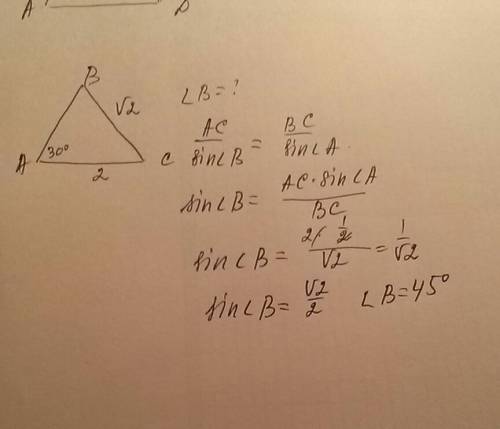 A D
B
√2
A 30° C
2
∠B=?
AC/sin∠B = BC/sin∠A.
sin∠B= AC·sin∠A/BC
sin∠B= 2·1/2/√2 = 1/√2
sin∠B= √2/2 ∠B=45°